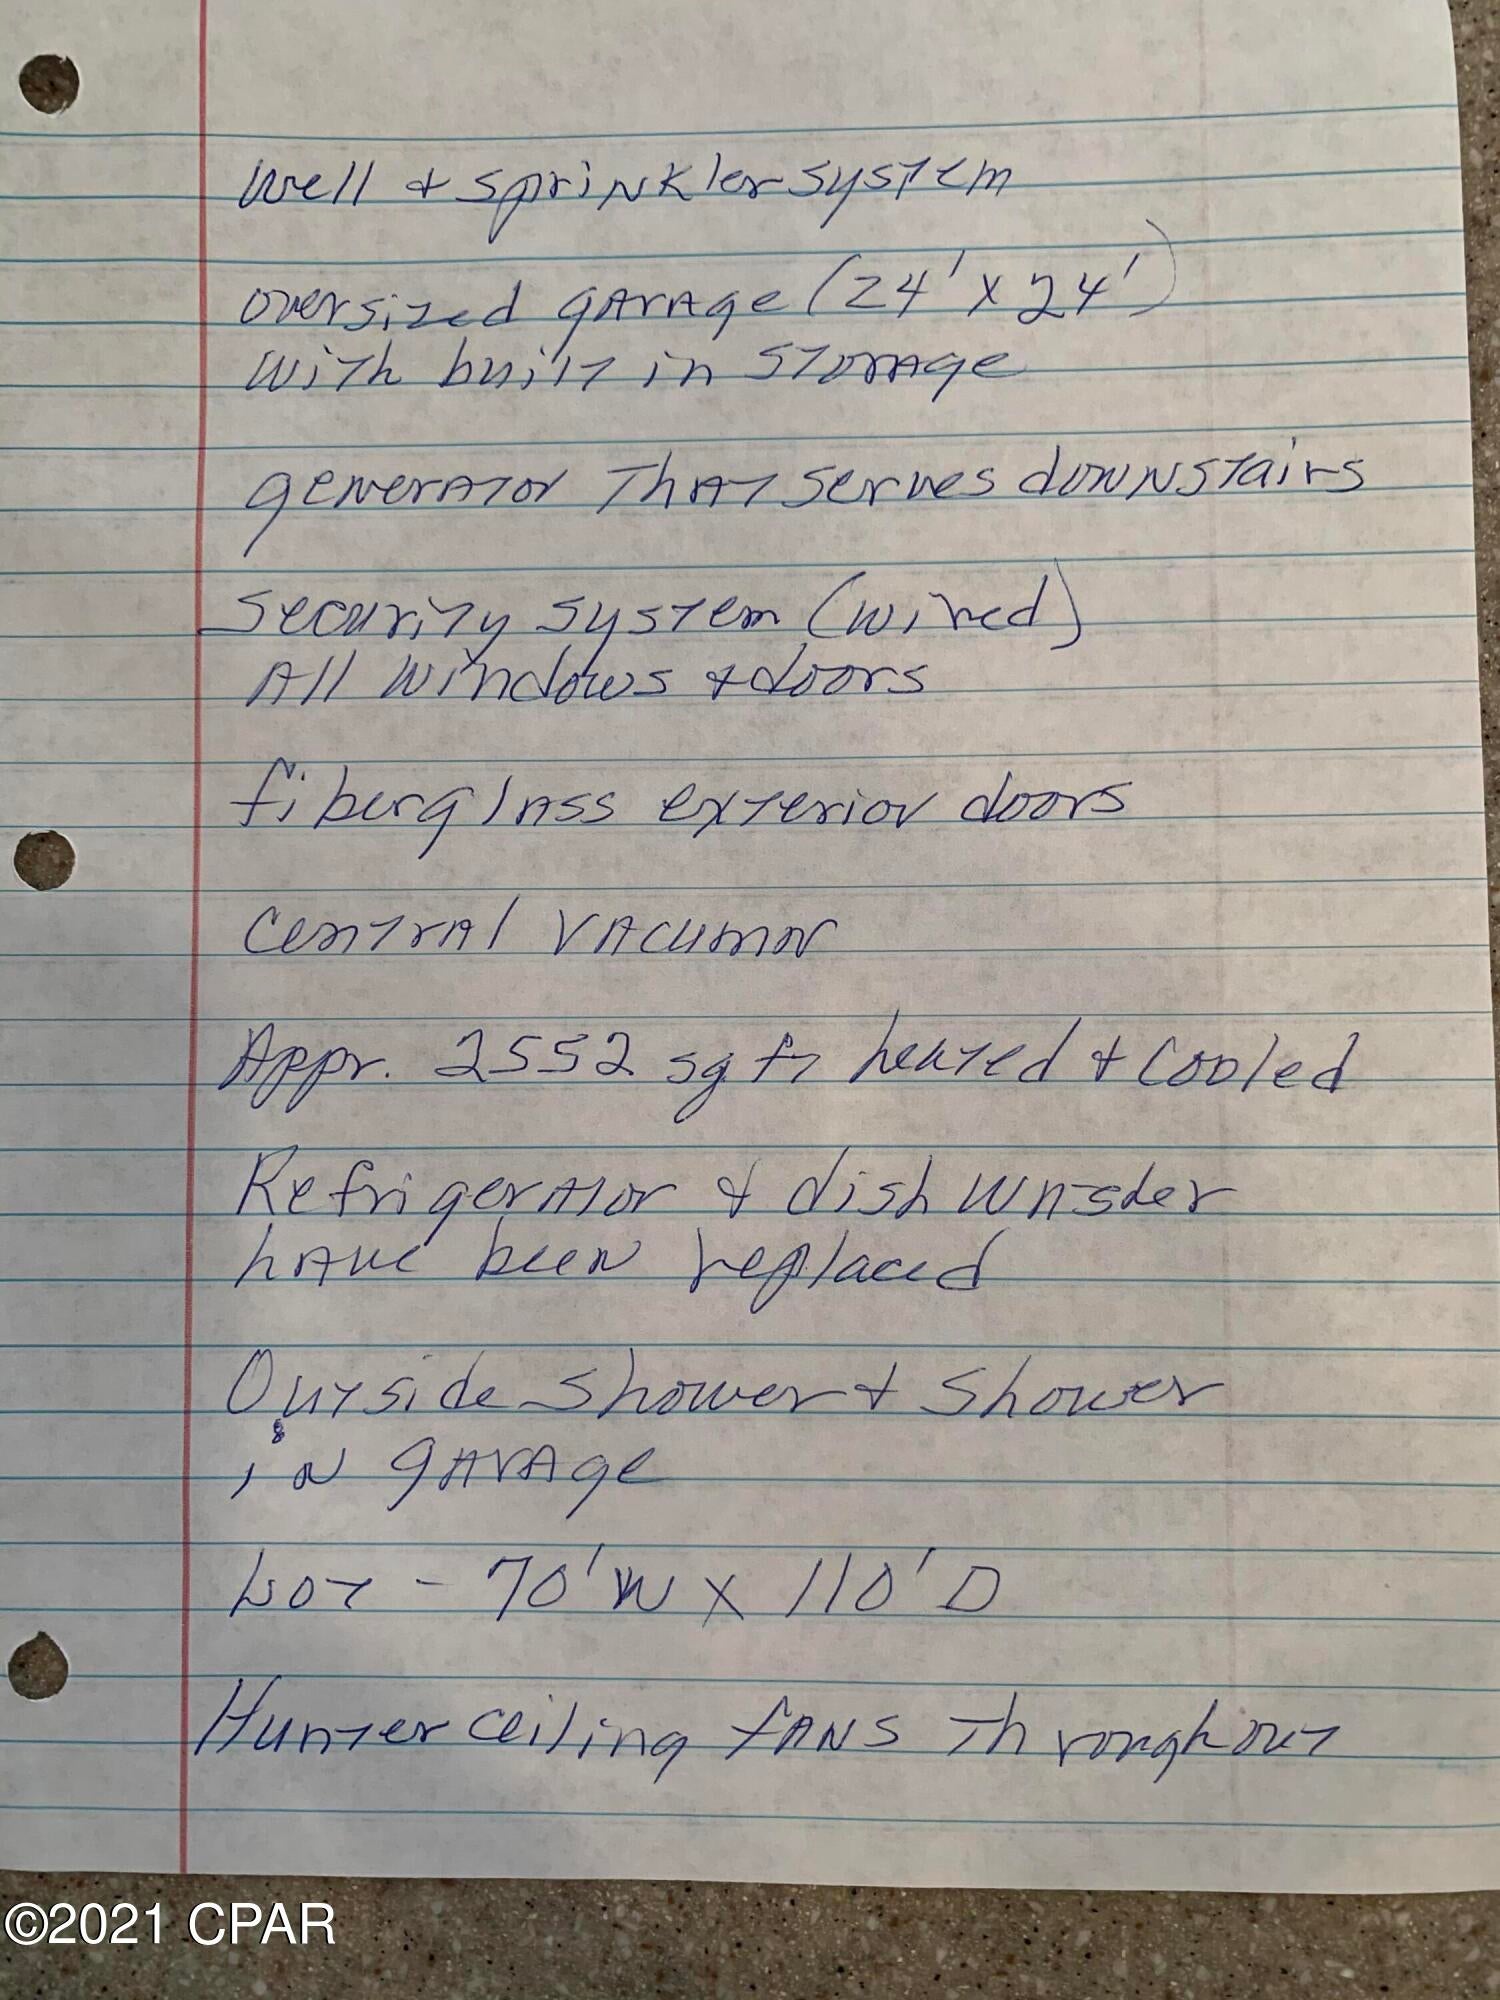 Well & sprinkler system
oversized garage (24' x 24')
with built in storage
generator that serves downstairs
security system (wired)
All windows & doors
fiberglass exterior doors
central vacumn
Appr. 2552 sq ft heated & cooled
Refrigerator & dish washer
have been replaced
Outside shower & shower
in garage
Lot - 70' W x 110' D
Hunter ceiling fans throughout
©2021 CPAR